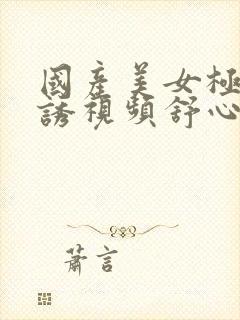 國產美女極
誘視頻舒心
蕭言